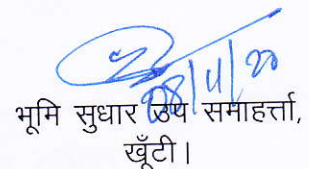 28/11/20
भूमि सुधार उप समाहर्त्ता,
खूँटी।